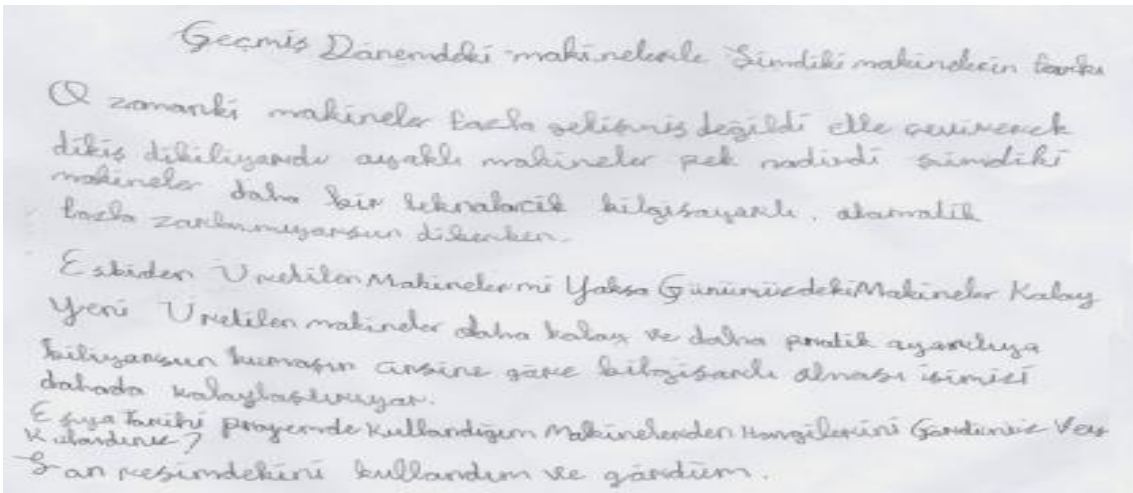 Geçmiş Dönemdeki makinelerle Şimdiki makinelerin farkı
O zamanki makineler fazla gelişmiş değildi elle çevirerek
dikiş dikiliyordu ayaklı makineler pek nadirdi şimdiki
makineler daha bir teknolocik bilgisayarlı, otomatik
fazla zorlanmıyorsun dikerken.
Eskiden Üretilen Makinelermi Yoksa Günümüzdeki Makineler Kolay
Yeni Üretilen makineler daha kolay ve daha pratik ayarlıya
biliyorsun kumaşın cinsine göre bilgisarlı olması işimizi
dahada kolaylaştırıyor.
Eşya Tarihi projemde Kullandığım Makinelerden Hangilerini Gördünüz Veya
Kulandınız?
Son resimdekini kullandım ve gördüm.